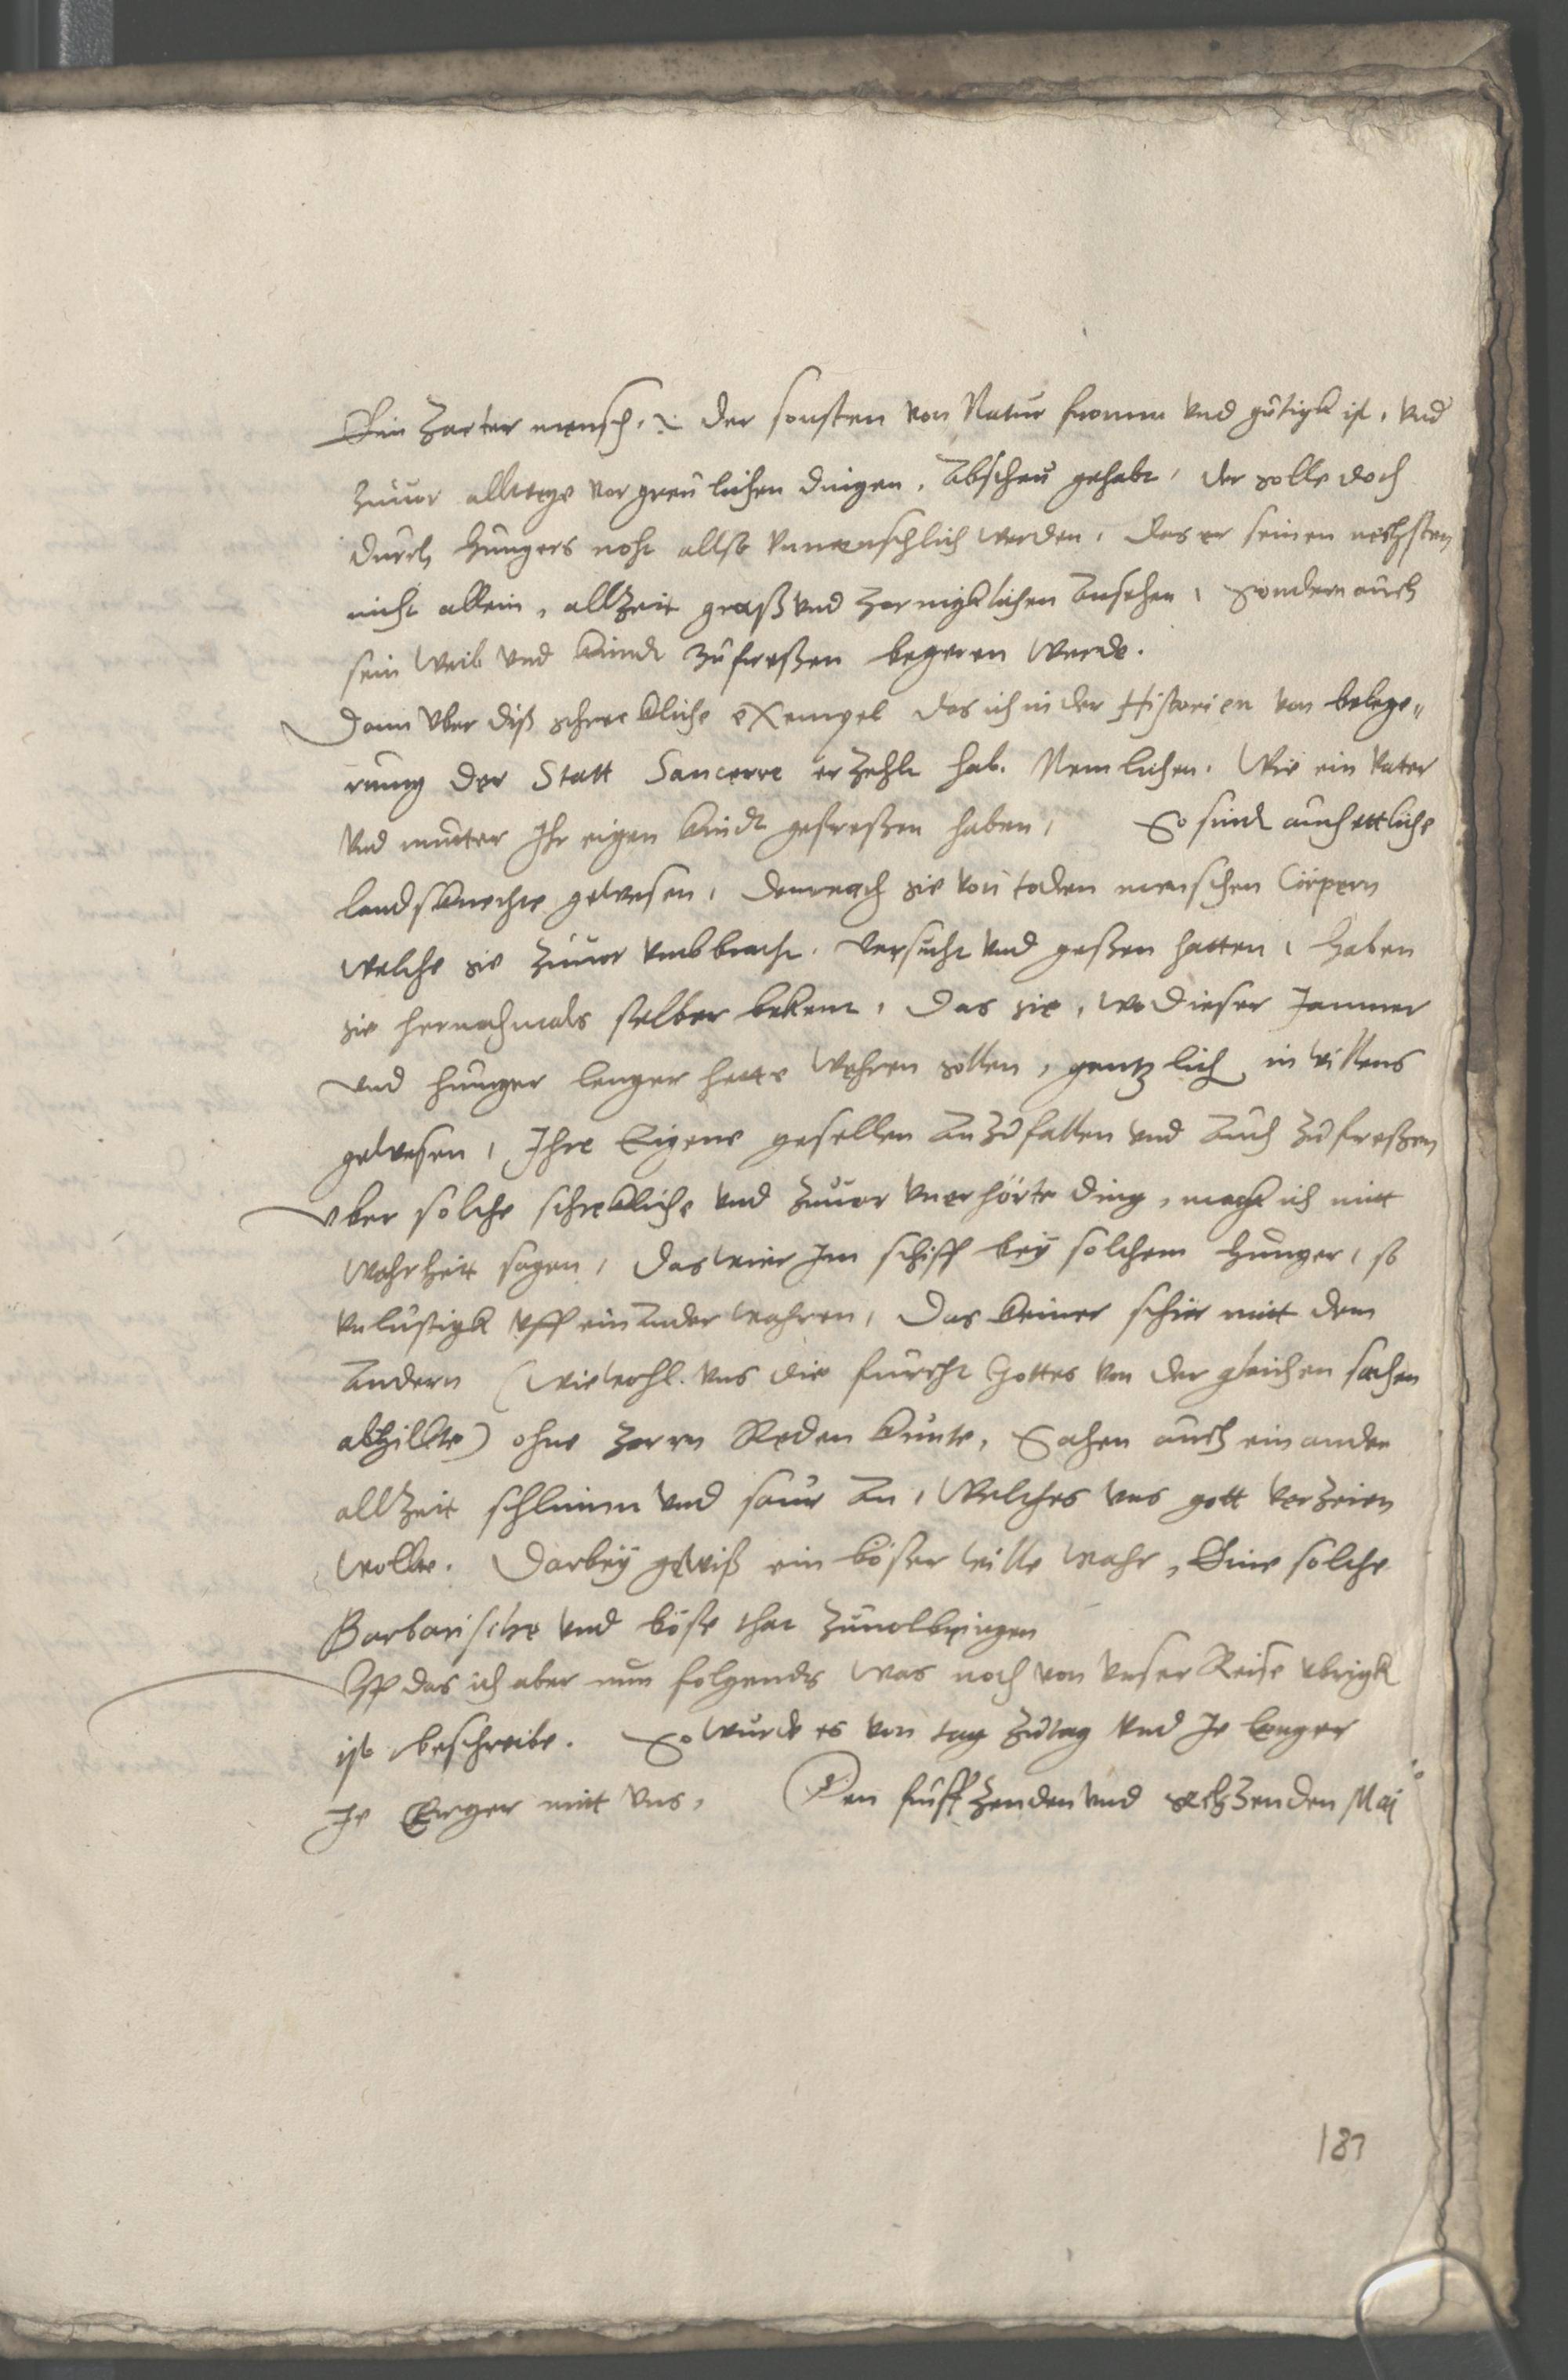 Ein Zarter mensch. der sonsten von Natur fromm vnd gütigk ist, vnd
Zuuor allwege vor greulichen dingen, Abscheu gehabt, der solle doch
durch hungers noht allso vnmenschlich werden, das er seinen nechsten
nicht allein, allzeit graß vnd zornigklichen Ansehen, sondern auch
sein Weib vnd kindt zufreßen begeren werde.
Dann vber diß schreckliche eXempel das ich in der Historien von belege„
rung der Statt Sancerre erzehlt hab. Nemlichen. Wie ein Vater
vnd mutter Ihr eigen kindt gefreßen haben, So sindt auch ettliche
landsknechte gewesen, demnach sie von toden menschen Cörpern
welche sie zuuor vmbbracht, versucht vnd geßen hatten, haben
sie hernachmals selber bekent, das sie, wo dieser Jammer
vnd hunger lenger hette wehren sollen, gentzlich in willens
gewesen, Ihre Eigene gesellen Anzufallen vnd Auch zufreßen
vber solche schrekliche vnd zuuor vnerhörte ding, magk ich mitt
Wahrheit sagen, das wir Im schiff bey solchem hunger, so
vnlustigk vff ein Ander wahren, Das keiner schier mitt dem
Andern (Wiewohl vns die furcht Gottes von der gleichen sachen
abhillte) ohne zorn Reden kunte, Sahen auch ein ander
allzeit schlimm vnd saur An, Welches vns gott verzeien
wolle. Darbey gewiß ein bößer wille wahr, Eine solche
Barbarische vnd böse that zuuolbringen
Vff das ich aber nun folgendts was noch von vnser Reise vbrigk
ist beschreibe. So wurde es von tag zu tag vnd Je lenger
Je Erger mitt vns, Den funffzenden vnd sechzenden Maij
187